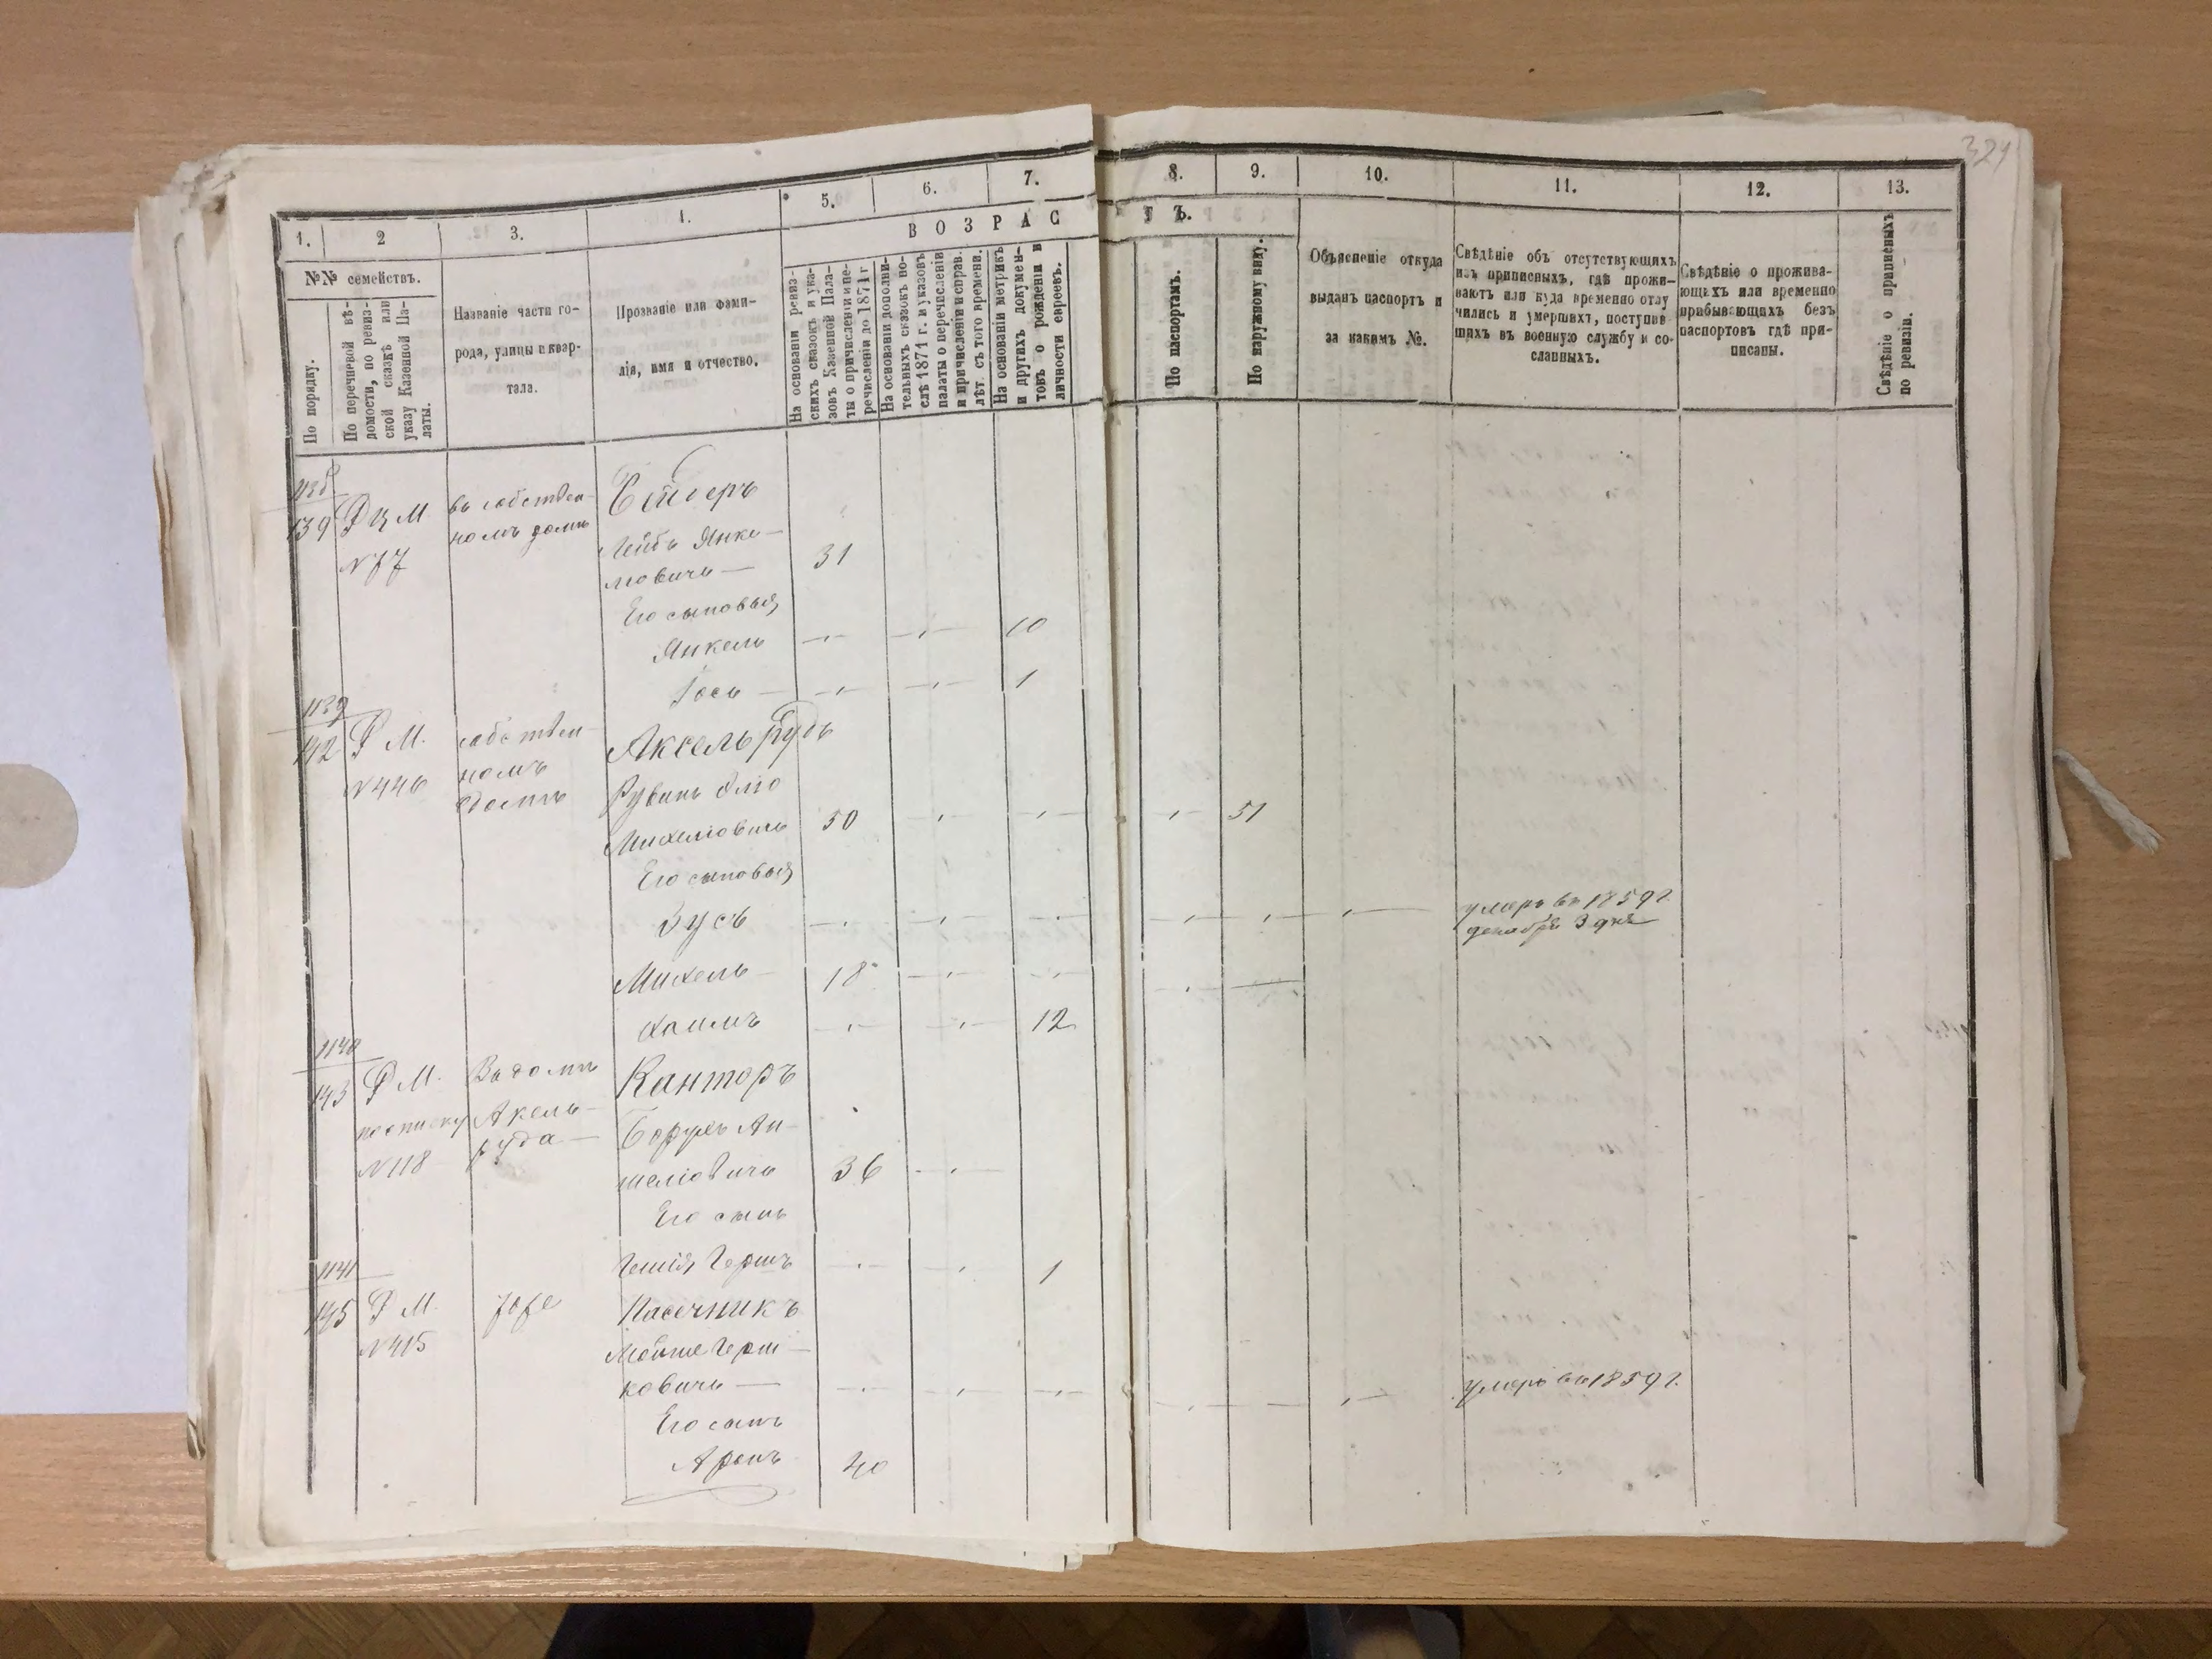 321
1.
2
3.
4.
5.
6.
7.
8.
9.
10.
11.
12.
13.
ВОЗРАС
ТЪ.
№№ семействъ.
По порядку.
По перечневой вѣ-
домости, по ревиз-
ской сказкѣ или
указу Казенной Па-
латы.
Названіе части го-
рода, улицы и квар-
тала.
Прозваніе или фами-
лія, имя и отчество.
На основаніи ревиз-
скихъ сказокъ и ука-
зовъ Казенной Пала-
ты о причисленіи и пе-
речисленіи до 1871 г
На основаніи дополни-
тельныхъ сказокъ по-
слѣ 1871 г. и указовъ
палаты о перечисленіи
и причисленіи и справ.
лѣт. съ того времени.
На основаніи метрикъ
и другихъ докумен-
товъ о рожденіи и
личности евреевъ.
По паспортамъ.
По наружному виду.
Объясненіе откуда
выданъ паспортъ и
за какимъ №.
Свѣдѣніе объ отсутствующихъ
изъ приписныхъ, гдѣ прожи-
ваютъ или куда временно отлу
чились и умершихъ, поступив
шихъ въ военную службу и со-
сланныхъ.
Свѣдѣніе о прожива-
ющихъ или временно
прибывающихъ безъ
паспортовъ гдѣ при-
писаны.
Свѣдѣніе о приписныхъ
по ревизіи.
1138
139
№ 77
въ собствен-
номъ домѣ
Лейбъ Янке-
ловичъ — 31
Его сыновья
Янкель 10
Іось — 1
1139
142 Р М.
№ 446
собствен-
номъ
домѣ
Аксельрудъ
Рувинъ Эліо
Михеліовичъ 50 51
Его сыновья
Зусь
умеръ въ 1859 г.
декабря 3 дня
Михель — 18
Хаимъ 12
1140
143 Р М.
№ 118
В домѣ
Акель-
руда —
Канторъ
Борухъ Ан-
шеліовичъ 36
Его сынъ
Гершъ 1
1141
145 Р М.
№ 415
Пасечникъ
Мойше Герш-
ковичъ —
умеръ въ 1859 г.
Его сынъ
Аронъ 40